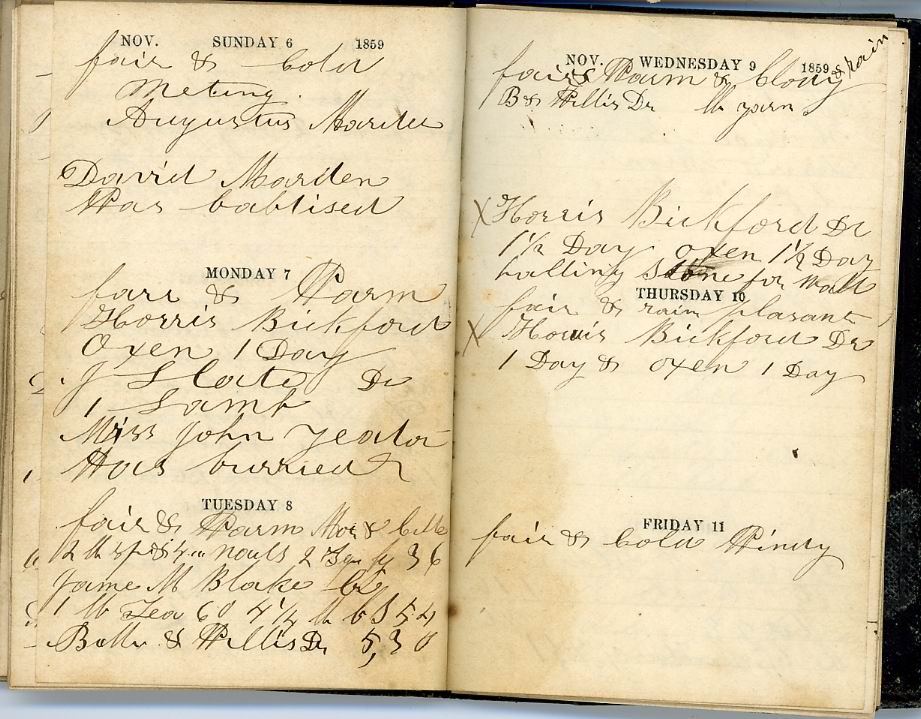 NOV. SUNDAY 6 1859
fair & cold
Meting.
Augustus Marden
David Marden
Was babtised
MONDAY 7
fare & Warm
Horris Bickford
Oxen 1 Day
J Slate Dr
1 Lamb
Miss John Yeaton
Was burried
TUESDAY 8
fair & Warm
2 36
Jame M Blake
1 lb Tea 60 4 1/2 lb 54
& Willis Dr 5,30
NOV. WEDNESDAY 9 1859
fair & Warm & Clouy & rain
B & Willis Dr yarn
X Horris Bickford Dr
1 1/2 Day oxen 1 1/2 Day
halling Stone for Wall
THURSDAY 10
fair & rain plasant
X Horris Bickford Dr
1 Day & oxen 1 Day
FRIDAY 11
fair & cold Windy